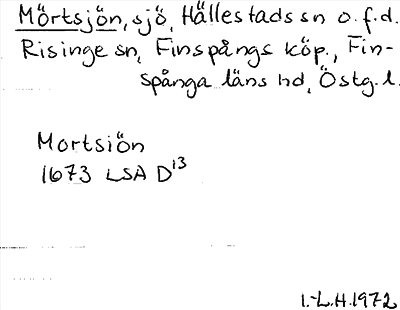 Mörtsjön, sjö, Hällestads sn o.f.d.
Risinge sn, Finspångs köp., Fin-
spånga läns hd, Östg.l.
Mortsiön
1673 LSA D13
I.-L.H.1972